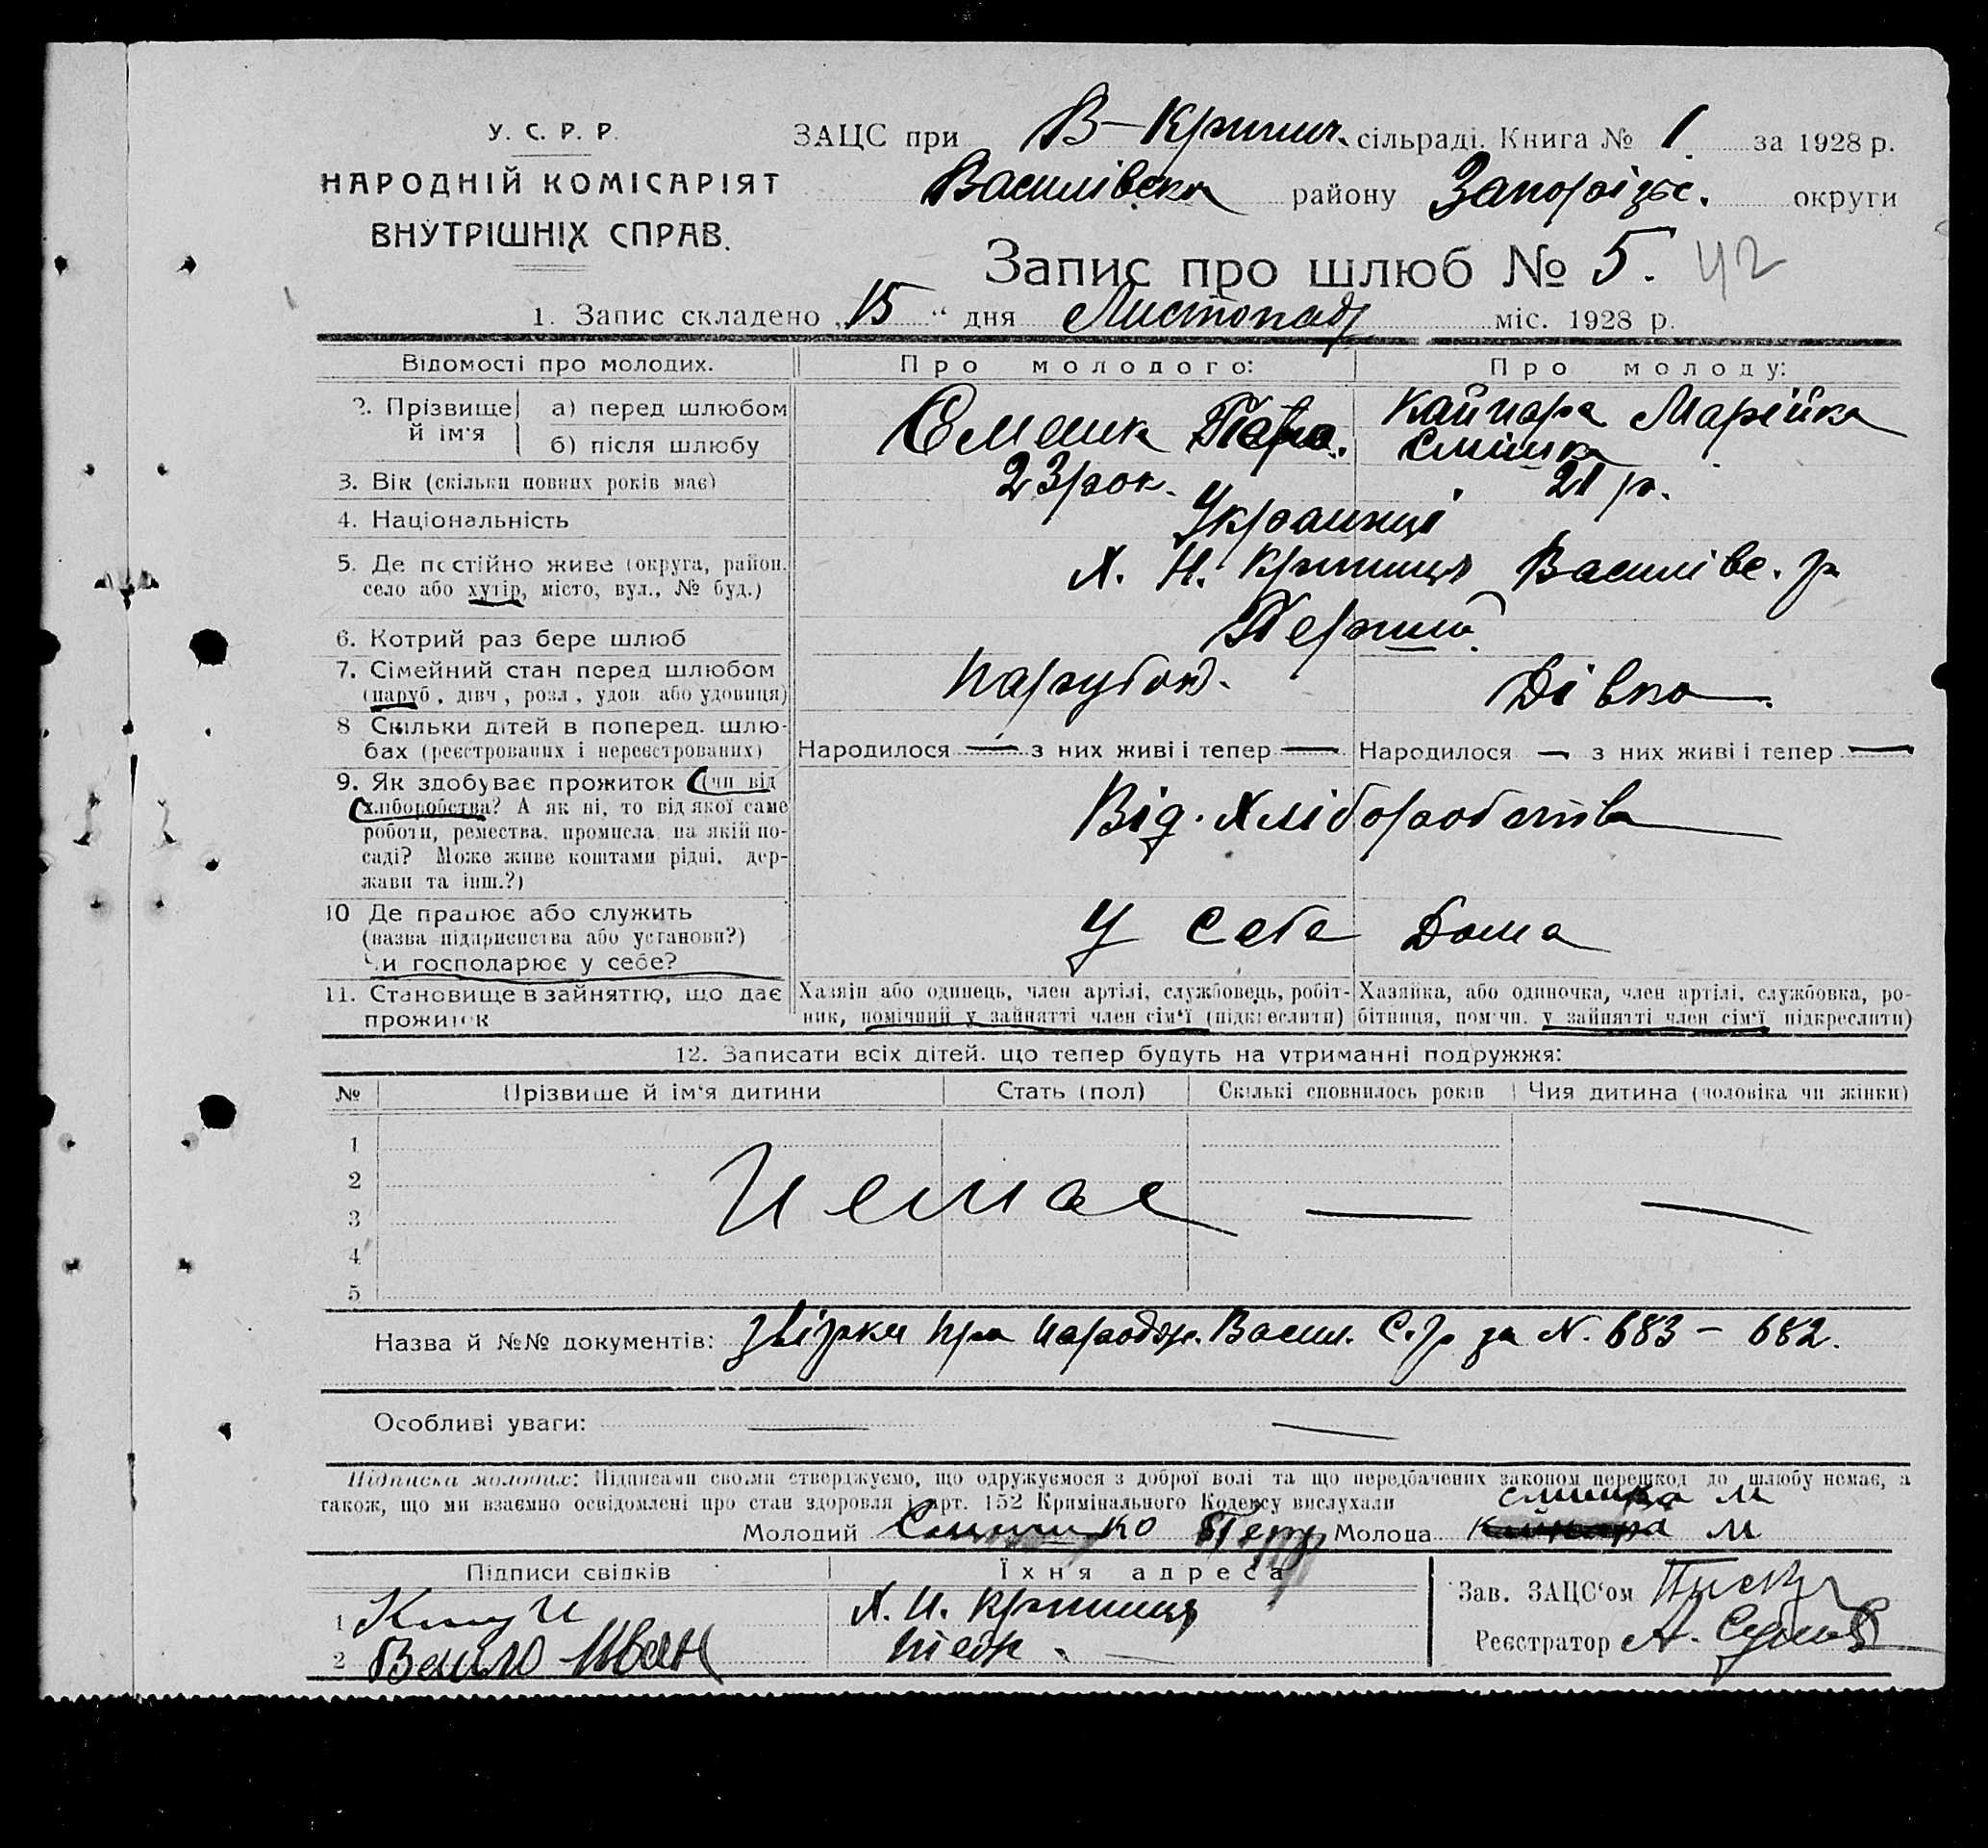 У. С. Р. Р.
НАРОДНІЙ КОМІСАРІЯТ
ВНУТРІШНІХ СПРАВ.
ЗАЦС при В-Кринич. сільраді. Книга № 1 за 1928 р.
Василівськ району Запоріцьк. округи
Запис про шлюб № 5. 42
1. Запис складено „15“ дня Листопаду міс. 1928 р.
Відомості про молодих. Про молодого: Про молоду:
2. Прізвище й ім'я
а) перед шлюбом Кайнара Марійка
б) після шлюбу Смішка
3. Вік (скільки повних років має) 23 рок. 21 р.
4. Національність Українці
5. Де постійно живе (округа, район, село або хутір, місто, вул., № буд.) Х. Н. Криниця Василівс. р
6. Котрий раз бере шлюб Перший
7. Сімейний стан перед шлюбом (паруб., дівч., розл., удов. або удовиця) Парубок. Дівка
8 Скільки дітей в поперед. шлюбах (реєстрованих і нереєстрованих) Народилося — з них живі і тепер — Народилося — з них живі і тепер —
9. Як здобуває прожиток (чи від
хліборобства? А як ні, то від якої саме
роботи, ремества, промисла, на якій по-
саді? Може живе коштами рідні, дер-
жави та інш.?)
Від. Хліборобства
10 Де працює або служить
(назва підприємства або установи?)
Чи господарює у себе?
У себе Дома
11. Становище в зайняттю, що дає прожиток
Хазяїн або одинець, член артілі, службовець, робіт-
ник, помічний у зайнятті член сім'ї (підкреслити)
Хазяйка, або одиночка, член артілі, службовка, ро-
бітниця, помічн. у зайнятті член сім'ї підкреслити)
12. Записати всіх дітей, що тепер будуть на утриманні подружжя:
№ Прізвище й ім'я дитини Стать (пол) Скількі сповнилось років Чия дитина (чоловіка чи жінки)
1
2
3
4
5
Немає — —
Назва й №№ документів: звірки про народж. Васил. С.р за N. 683 – 682.
Особливі уваги: — —
Підписка молодих: Підписами своїми стверджуємо, що одружуємося з доброї волі та що передбачених законом перешкод до шлюбу немає, а
також, що ми взаємно освідомлені про стан здоровля і арт. 152 Кримінального Кодексу вислухали
смишка м
Молодий Молода м
Підписи свідків Їхня адреса
1 Х. Н. Криниця
2 Іван теж —
Зав. ЗАЦС'ом
Реєстратор А.